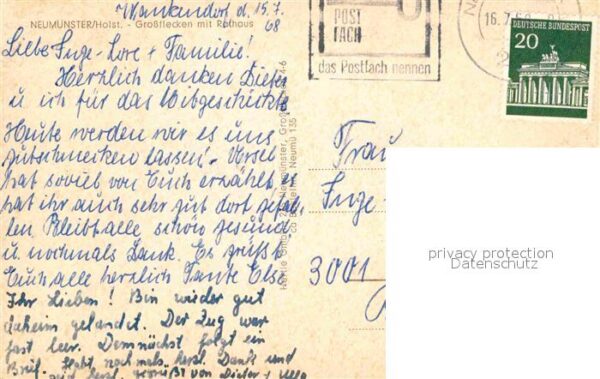 Wankendorf d. 15.7.
68
NEUMÜNSTER/Holst. - Großflecken mit Rathaus
Liebe Inge-Lore + Familie!
Herzlich danken Dieter
u ich für das Mitgeschickte
Heute werden wir es uns
gutschmecken lassen! Ursel
hat soviel von Euch erzählt, es
hat ihr auch sehr gut dort gefal-
len. Bleibt alle schön gesund
u. nochmals Dank. Es grüßt
Euch alle herzlich Tante Else
Ihr Lieben! Bin wieder gut
daheim gelandet. Der Zug war
fast leer. Demnächst folgt ein
Brief. Habt nochmals herzl. Dank und
seid herzl. gegrüßt von Dieter +
POST
FACH
das Postfach nennen
16.7.68
DEUTSCHE BUNDESPOST
20
Frau
Inge-
3001
privacy protection
Datenschutz